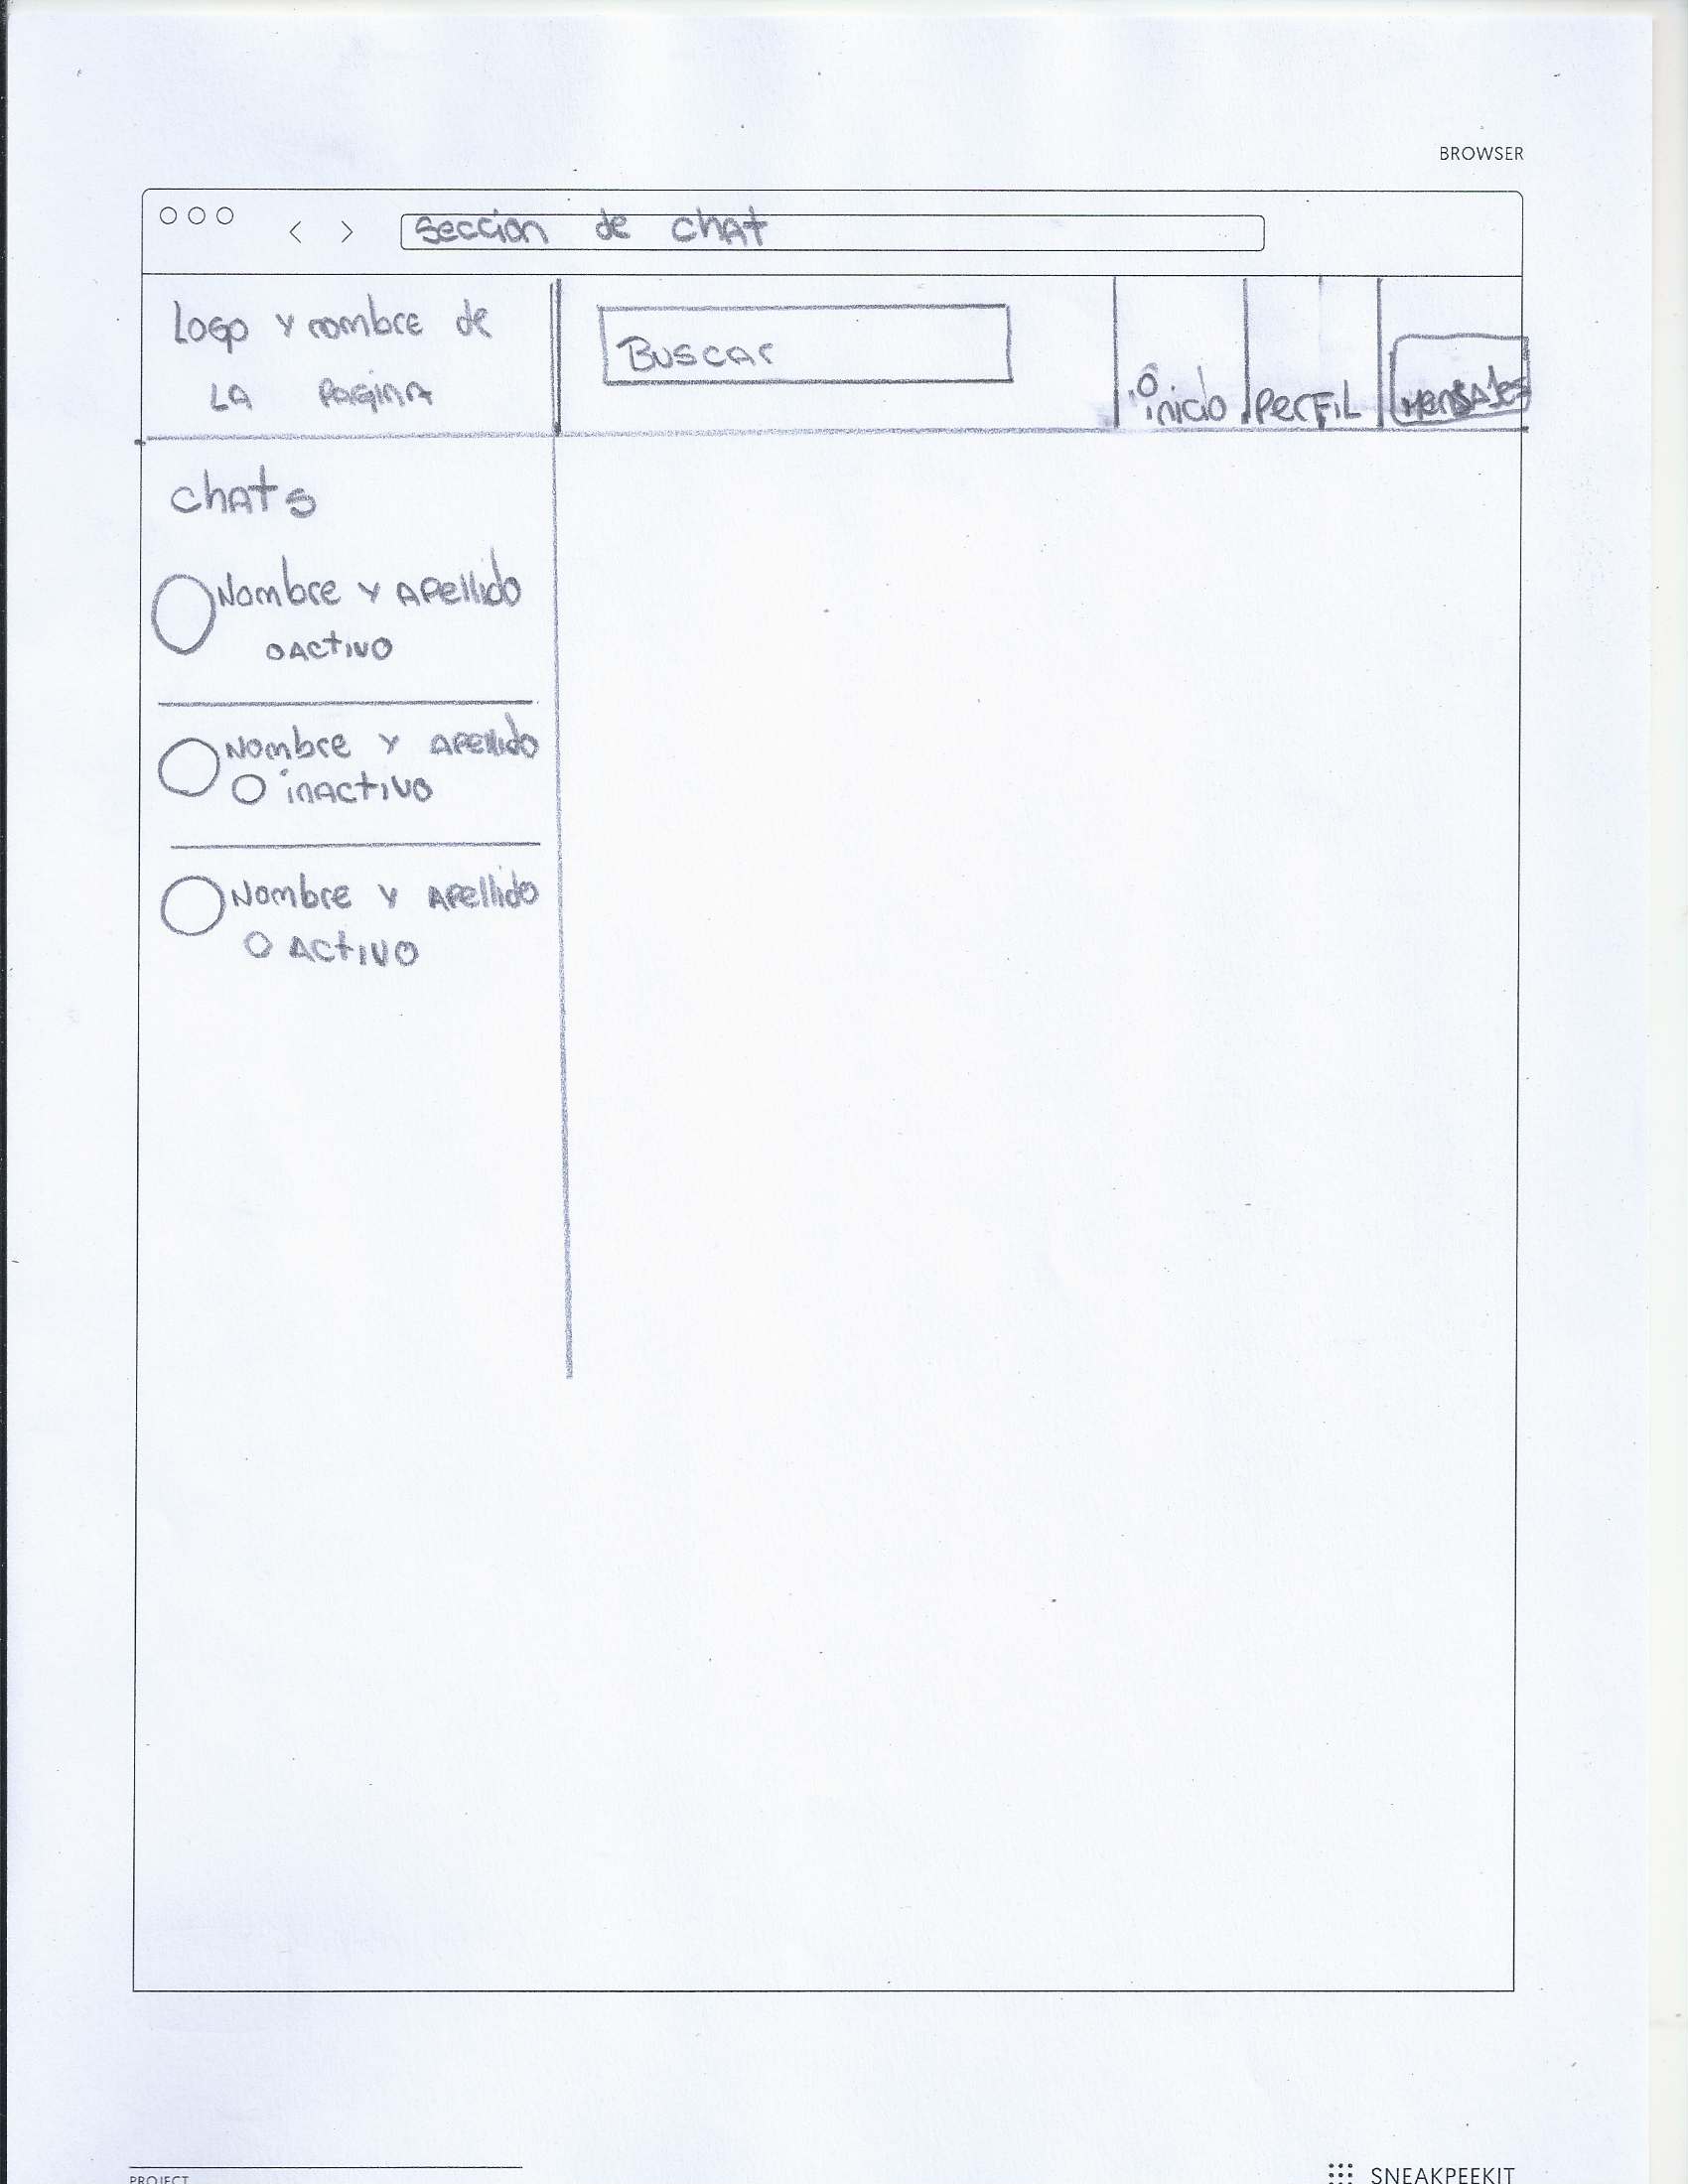 BROWSER
sección de chat
Logo y nombre de
LA PAGINA
BUSCAR
inicio
PERFIL
MENSAJES
chats
Nombre y APellido
ACTIVO
Nombre y APELLIDO
inACTIVO
Nombre y APellido
ACTIVO
PROJECT
SNEAKPEEKIT